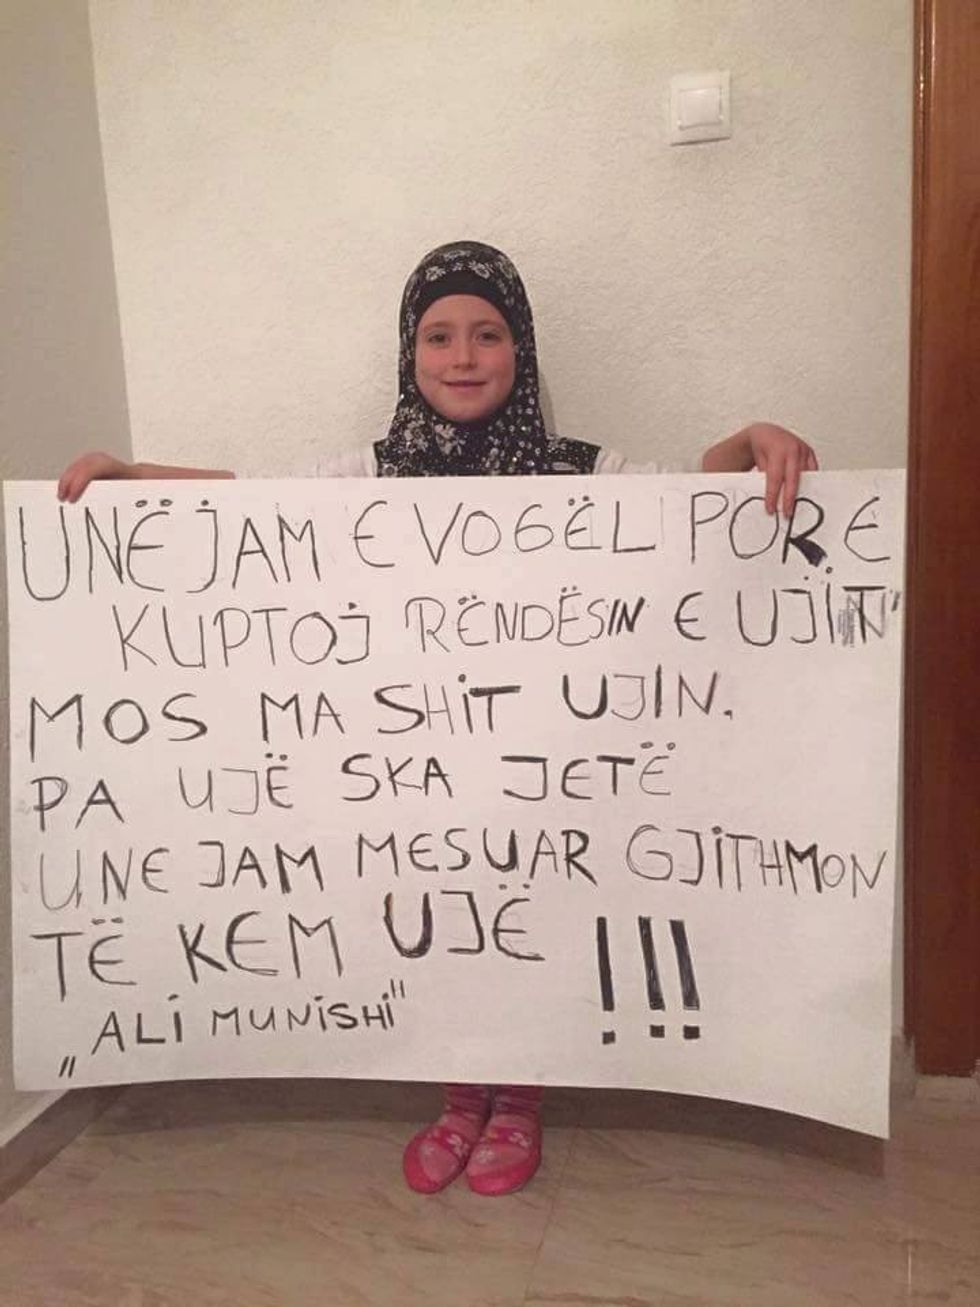 UNË JAM E VOGËL POR E
KUPTOJ RËNDËSIN E UJIT
MOS MA SHIT UJIN.
PA UJË SKA JETË
UNE JAM MESUAR GJITHMON
TË KEM UJË !!!
„ALI MUNISHI"